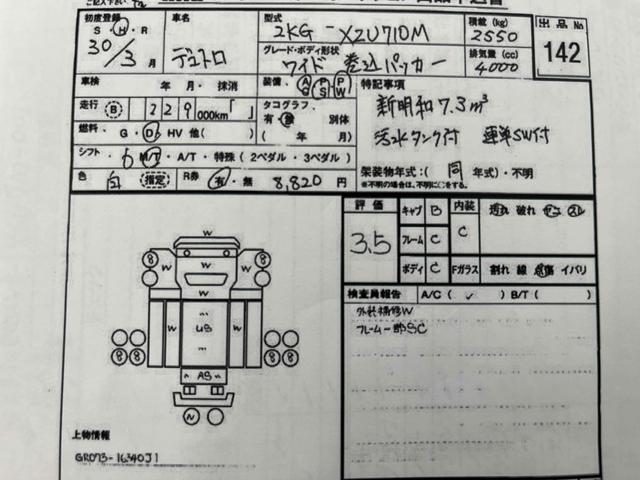 初度登録 車名 型式 2KG-XZU710M 積載(kg) 2550 出品No 142
S・H・R 30年3月 デュトロ グレード・ボディ形状 ワイド 巻込パッカー 排気量(cc) 4000
車検 年 月・抹消 装備 AC PS PW 特記事項
走行 B 229,000km「 」 タコグラフ 有・無 別体 新明和7.3m³
燃料 G・D・HV 他( ) ( 年 月) 汚水タンク付 連単SW付
シフト 6 MT・A/T・特殊(2ペダル・3ペダル) 架装物年式:( 同 年式)・不明
色 白 指定 R券 有・無 8,820円 *不明の場合は、不明に○をする。
評価 3.5 キャブ B 内装 C 汚れ 破れ ヤニ スレ
フレーム C
ボディ C Fガラス 割れ 線 飛傷 イバリ
検査員報告 A/C( ✓ ) B/T( )
外装補修W
フレーム一部SC
W
8 W 8
W W
W US W
8 8 8 8
AS
N
上物情報
GR073-16340J1